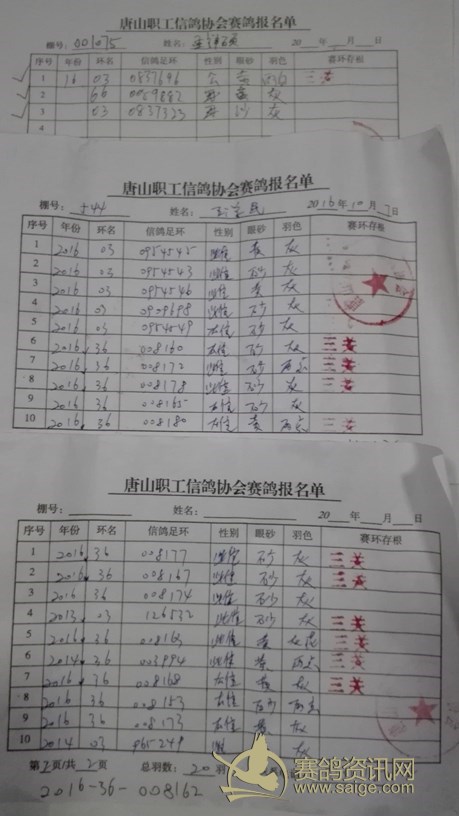 唐山职工信鸽协会赛鸽报名单
棚号: 001075 姓名: 20 年 月 日
序号 年份 环名 信鸽足环 性别 眼砂 羽色 赛环存根
1 16 03 0837696 三关
2 灰
3 03 0837323 砂 灰
4
唐山职工信鸽协会赛鸽报名单
棚号: 姓名: 2016年10月7日
序号 年份 环名 信鸽足环 性别 眼砂 羽色 赛环存根
1 2016 03 0954545 雌 黄 灰
2 2016 03 0954543 雌 砂 灰
3 2016 03 0954546 雌 黄 灰
4 2016 03 0909698 雌 砂 灰
5 2016 03 0954549 雄 砂 灰
6 2016 36 008160 雄 砂 灰 三关
7 2016 36 008172 雌 砂 雨点 三关
8 2016 36 008178 雌 砂 灰 三关
9 2016 36 008165 雌 砂 灰
10 2016 36 008180 雄 黄 雨点 三关
唐山职工信鸽协会赛鸽报名单
棚号: 姓名: 20 年 月 日
序号 年份 环名 信鸽足环 性别 眼砂 羽色 赛环存根
1 2016 36 008177 雌 砂 灰 三关
2 2016 36 008167 雌 砂 灰 三关
3 2016 36 008174 雌 砂 灰
4 2013 03 126532 雌 砂 灰 三关
5 2016 36 008163 雌 黄 灰花 三关
6 2014 36 003994 雌 黄 雨点 三关
7 2016 36 008168 雄 黄 灰 三关
8 2016 36 008153 雄 砂 雨点
9 2016 36 008173 雄 黄 灰
10 2014 03 灰
第2页/共2页 总羽数: 20
2016-36-008162
赛鸽资讯网
www.saige.com